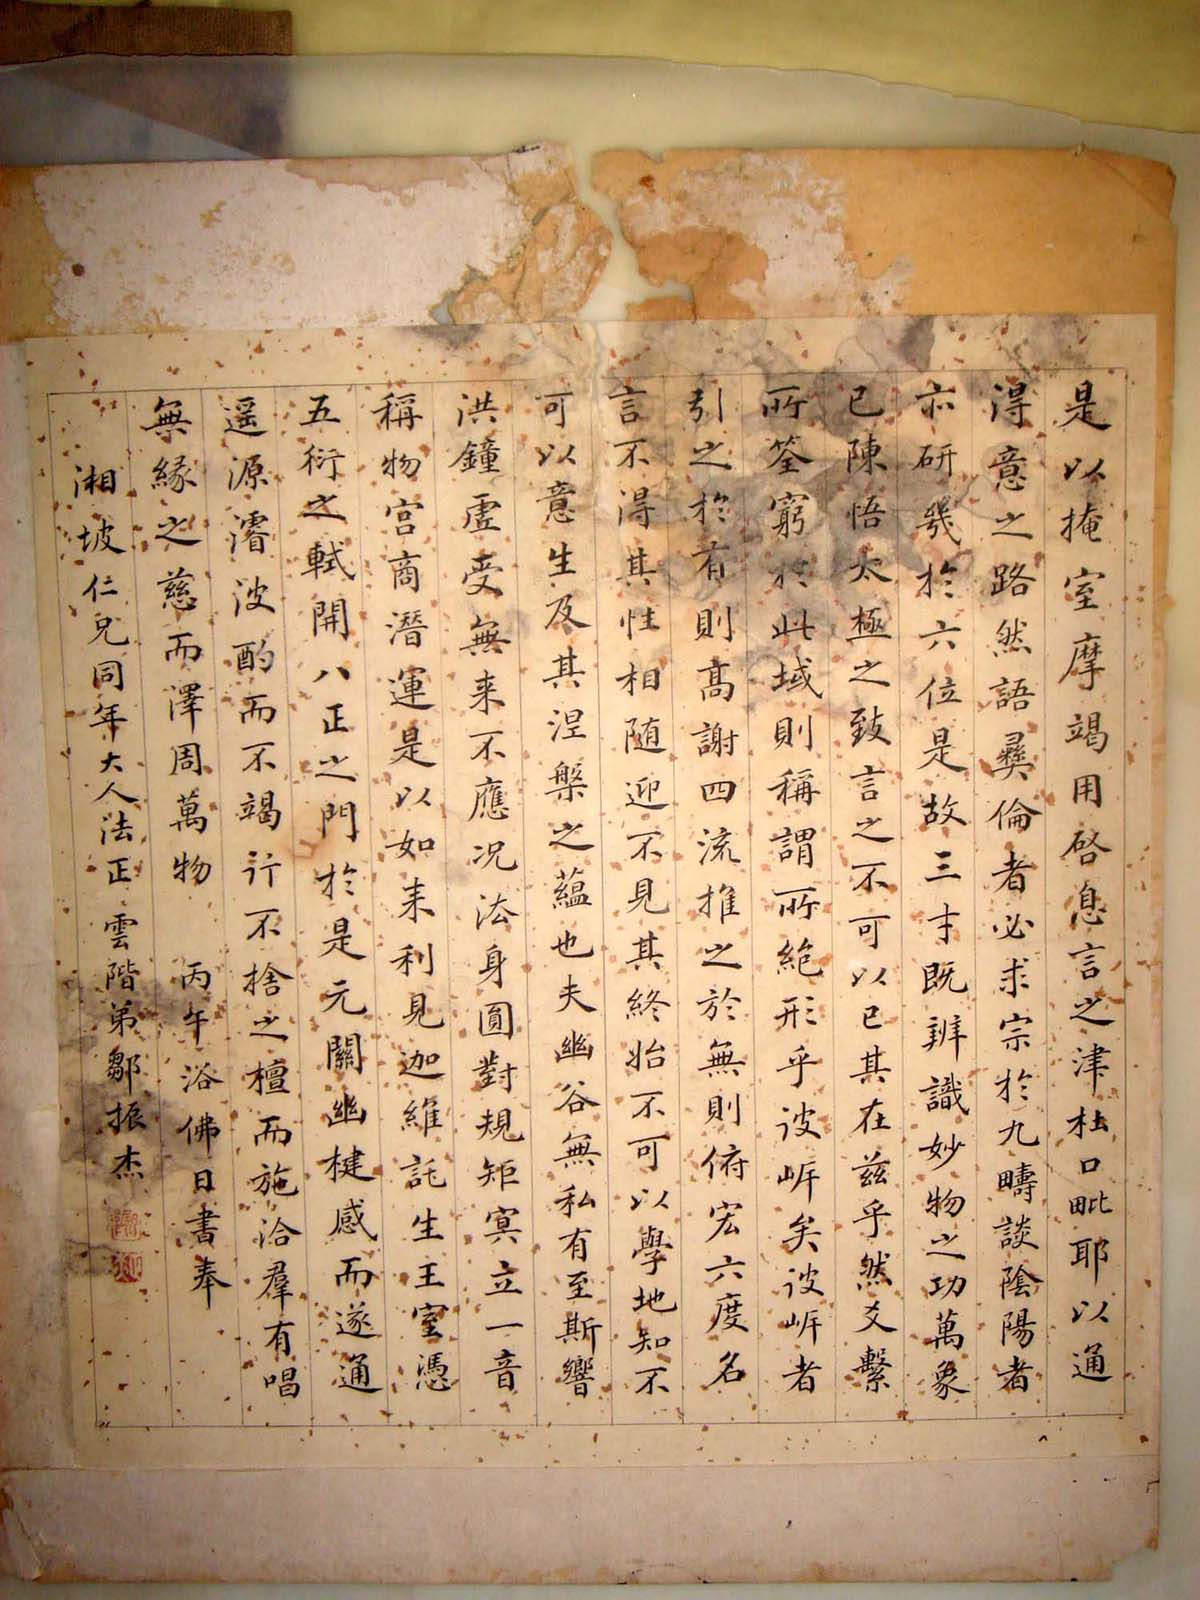 是以掩室摩竭用啓息言之津杜口毗耶以通
得意之路然語彝倫者必求宗於九疇談陰陽者
亦研幾於六位是故三才既辨識妙物之功萬象
已陳悟太極之致言之不可以已其在茲乎然爻繫
所筌窮於此域則稱謂所絶形乎彼岸矣彼岸者
引之於有則高謝四流推之於無則俯宏六度名
言不得其性相随迎不見其終始不可以學地知不
可以意生及其涅槃之蘊也夫幽谷無私有至斯響
洪鐘虛受無来不應况法身圓對規矩冥立一音
稱物宮商潛運是以如来利見迦維託生王室憑
五衍之軾開八正之門於是元關幽楗感而遂通
遥源濬波酌而不竭行不捨之檀而施洽羣有唱
無緣之慈而澤周萬物 丙午浴佛日書奉
湘坡仁兄同年大人法正雲階弟鄒振杰